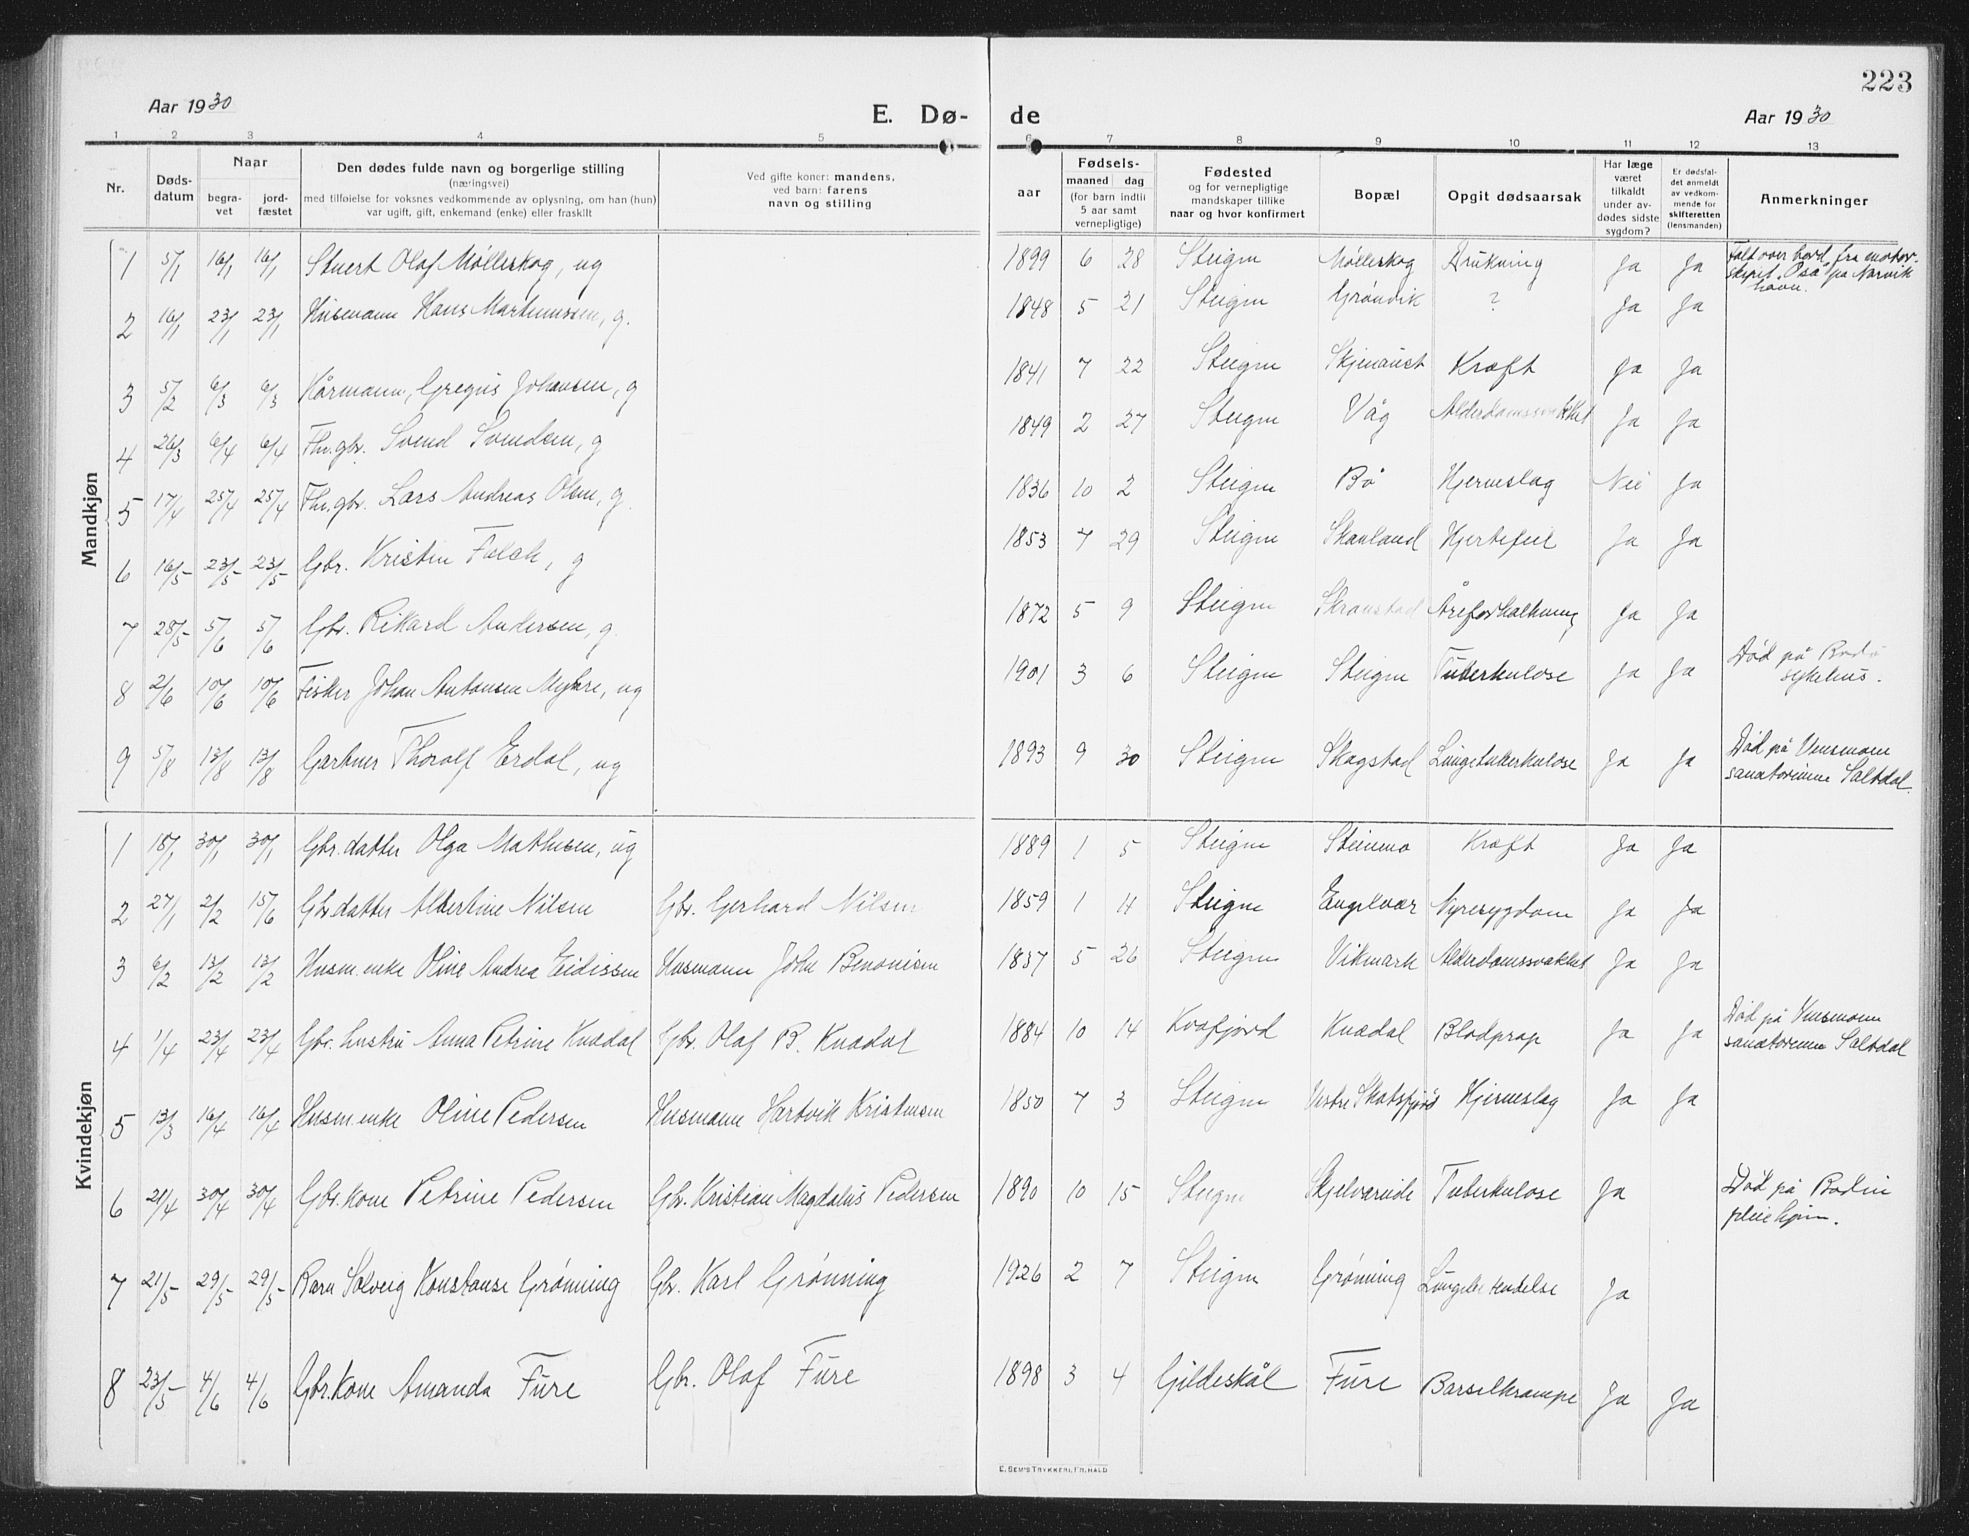 223
Aar 1930 E. Dø- de Aar 1930
1 2 3 4 5 6 7 8 9 10 11 12 13
Nr. Døds-datum Naar begra-vet jord-fæstet Den dødes fulde navn og borgerlige stilling (næringsvei) med tilføielse for voksnes vedkommende av oplysning, om han (hun) var ugift, gift, enkemand (enke) eller fraskilt Ved gifte koner: mandens, ved barn: farens navn og stilling aar Fødsels- maaned dag (for barn indtil 5 aar samt vernepligtige) Fødested og for vernepligtige mandskaper tillike naar og hvor konfirmert Bopæl Opgit dødsaarsak Har læge været tilkaldt under av-dødes sidste sygdom? Er dødsfal-det anmeldt av vedkom-mende for skifteretten (lensmanden) Anmerkninger
Mandkjøn
1 5/1 16/1 16/1 Stuert Olaf Møllerskog, ug 1899 6 28 Steigen Møllerskog Drukning Ja Ja Falt over bord fra motor-
skipet "Osa" på Narvik
havn.
2 16/1 23/1 23/1 Husmann Hans Martinussen, g. 1848 5 21 Steigen Grønvik ? Ja Ja
3 5/2 6/3 6/3 Kårmann, Gregus Johansen, g 1841 7 22 Steigen Skjenaust Kræft Ja Ja
4 26/3 6/4 6/4 Fhn.gbr. Svend Svendsen, g 1849 2 27 Steigen Våg Alderdomssvakhet Ja Ja
5 17/4 25/4 25/4 Fhn.gbr. Lars Andreas Olsen, g. 1836 10 2 Steigen Bø Hjerneslag Nei Ja
6 16/5 23/5 23/5 Gbr. Kristin Falch, g 1853 7 29 Steigen Skanland Hjertefeil Ja Ja
7 28/5 5/6 5/6 Gbr. Rikard Andersen, g. 1872 5 9 Steigen Skranstad Åreforkalkning Ja Ja
8 2/6 10/6 10/6 Fisker Johan Antonsen Myhre, ug 1901 3 6 Steigen Steigen Tuberkulose Ja Ja Død på Bodø
sykehus.
9 5/8 13/8 13/8 Gartner Thorolf Erdal, ug 1893 9 30 Steigen Skagstad Lungetuberkulose Ja Ja Død på Vensmoen
sanatorium Saltdal.
Kvindekjøn
1 18/1 30/1 30/1 Gbr.datter Olga Mathisen, ug 1889 1 5 Steigen Steinmo Kræft Ja Ja
2 27/1 2/2 15/6 Gbr.datter Albertine Nilsen Gbr. Gerhard Nilsen 1859 1 14 Steigen Engelvær Nyresygdom Ja Ja
3 6/2 13/2 13/2 Husm.enke Oline Andrea Eidissen Husmann John Benonisen 1837 5 26 Steigen Vikmark Alderdomssvakhet Ja Ja
4 1/4 23/4 23/4 Gbr. hustru Anna Petrine Knædal Gbr. Olaf B. Knædal 1884 10 14 Kvæfjord Knædal Blodprop Ja Ja Død på Vensmoen
sanatorium Saltdal
5 13/3 16/4 16/4 Husm.enke Oline Pedersen Husmann Hartvik Kristensen 1850 7 3 Steigen Vestre Skotsfjord Hjerneslag Ja Ja
6 21/4 30/4 30/4 Gbr.kone Petrine Pedersen Gbr. Kristian Magdalus Pedersen 1890 10 15 Steigen Skjelvareide Tuberkulose Ja Død på Bodin
pleiehjem.
7 21/5 29/5 29/5 Barn Solveig Konstanse Grønning Gbr. Karl Grønning 1926 2 7 Steigen Grønning Lungebetendelse Ja
8 23/5 4/6 4/6 Gbr.kone Amanda Fure Gbr. Olaf Fure 1898 3 4 Gildeskål Fure Barselkrampe Ja Ja
E. SEM'S TRYKKERI, FR.HALD